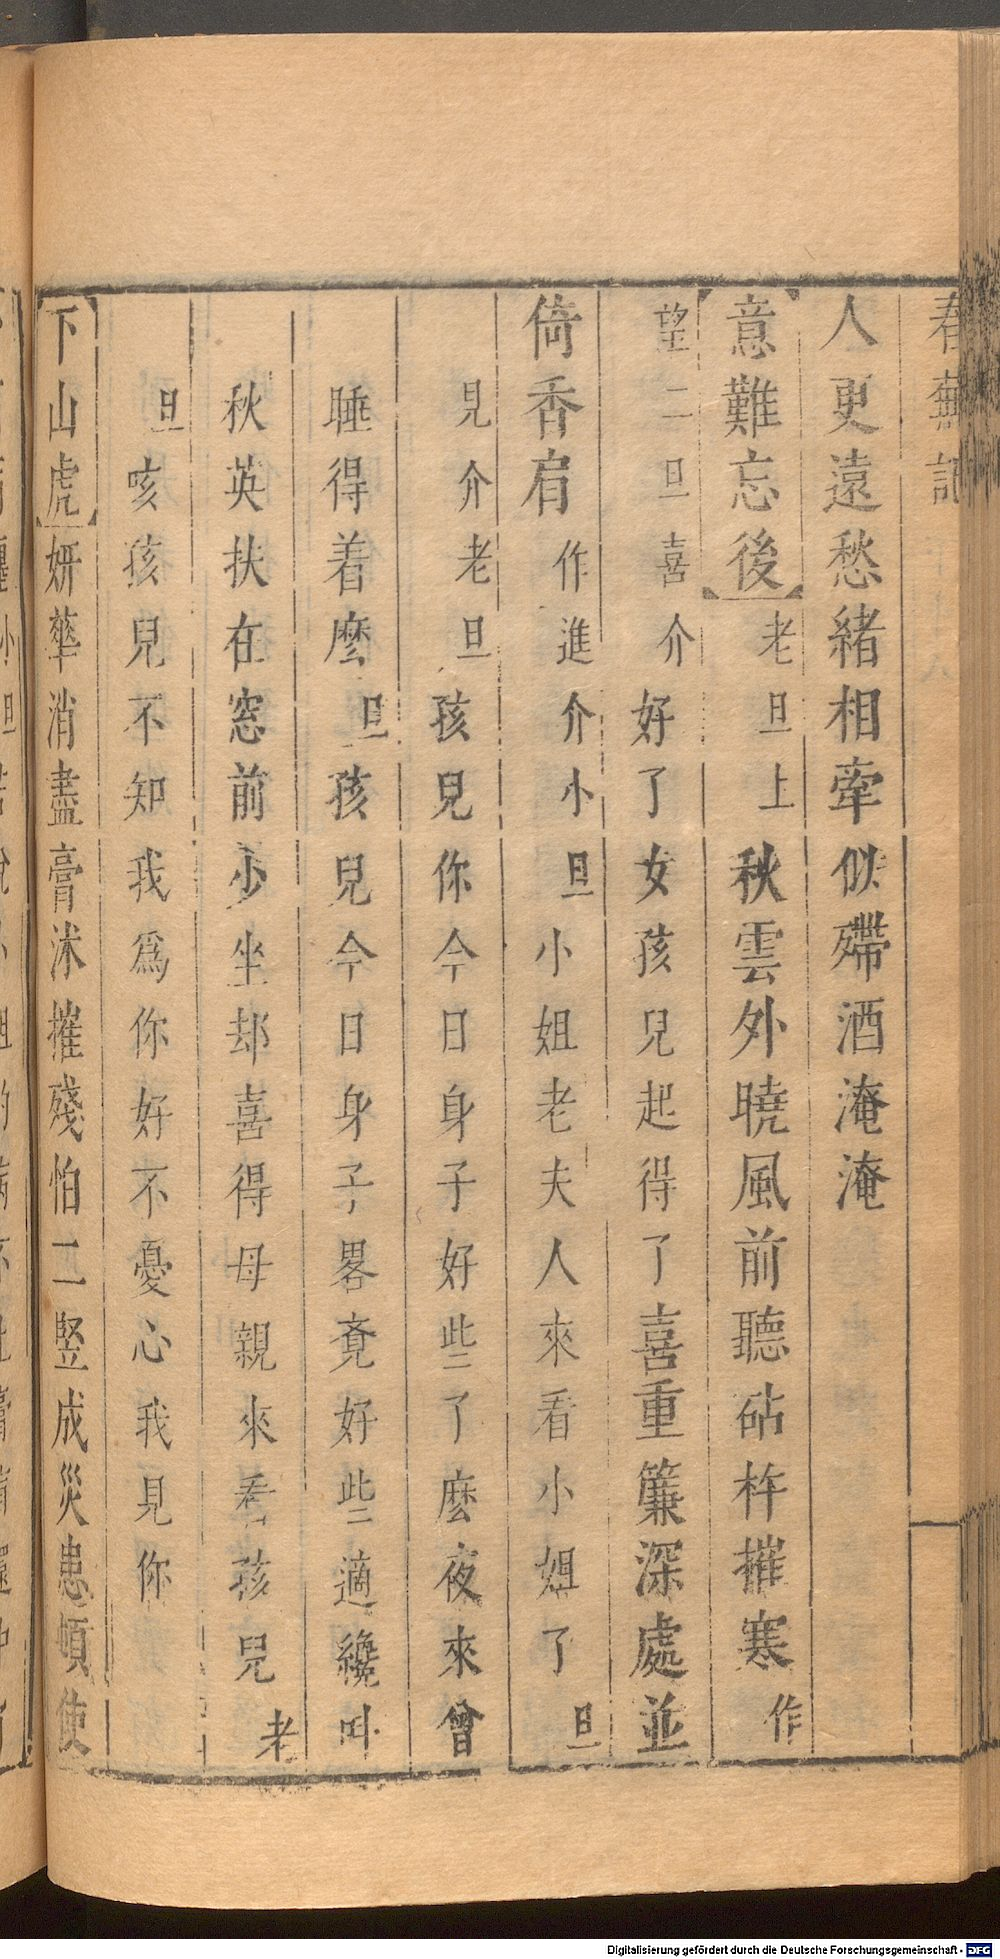 春蕪記
人更遠愁緒相牽似殢酒淹淹
意難忘後老旦上秋雲外曉風前聽砧杵摧寒作
望二旦喜介好了女孩兒起得了喜重簾深處並
倚香肩作進介小旦小姐老夫人來看小姐了旦
見介老旦孩兒你今日身子好些了麽夜來曾
睡得着麽旦孩兒今日身子畧覔好些適纔叫
秋英扶在窓前少坐却喜得母親來看孩兒老
旦咳孩兒不知我爲你好不憂心我見你
下山虎妍華消盡膏沐摧殘怕二竪成災患頓使
Digitalisierung gefördert durch die Deutsche Forschungsgemeinschaft - DFG